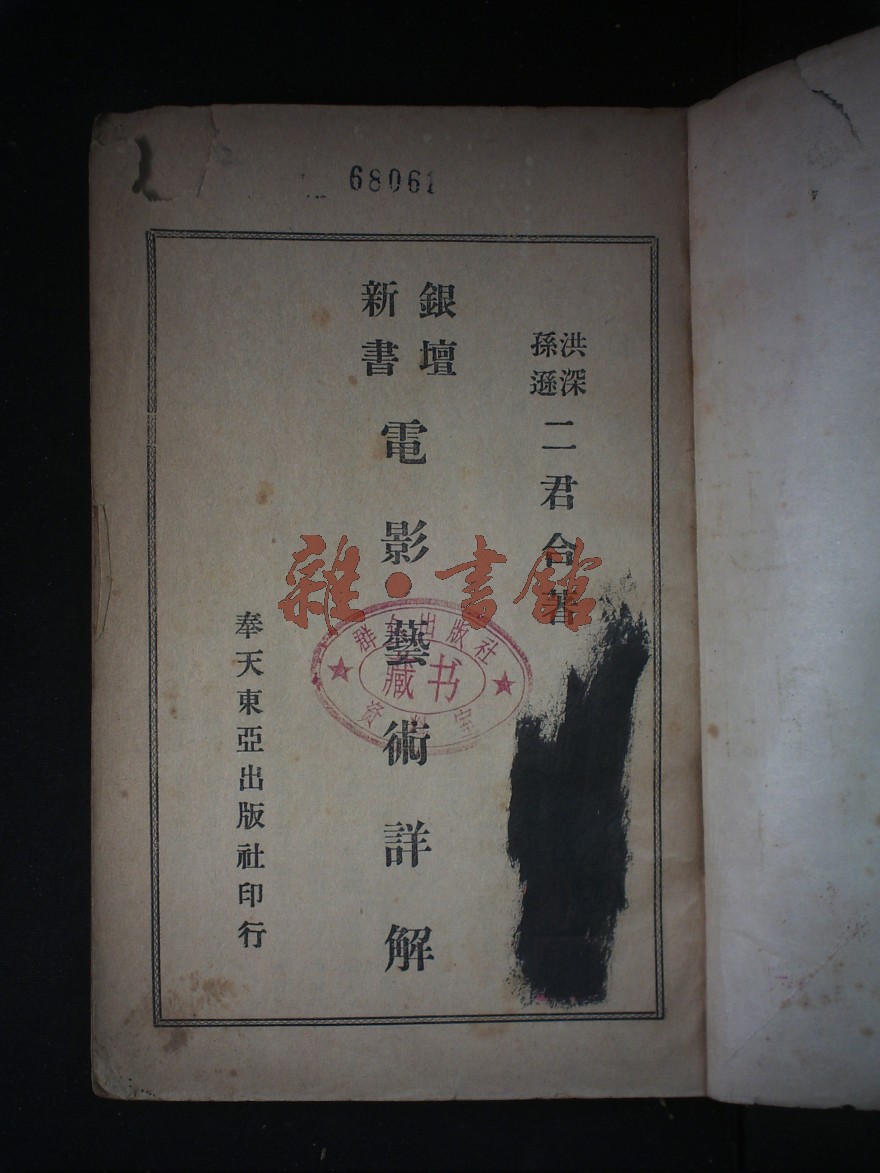 68061
洪深
孫遜
二君合著
銀壇
新書
電影藝術詳解
奉天東亞出版社印行
雜·書館
群 出版社
藏书
资 室